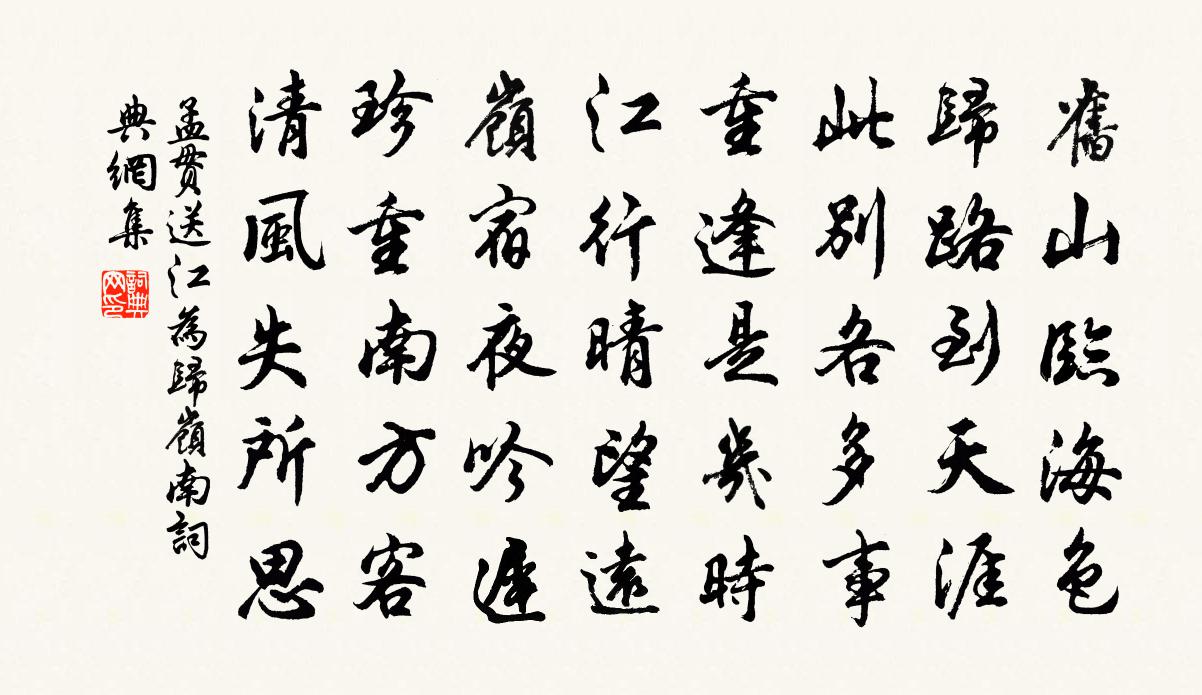 舊山臨海色
歸路到天涯
此別各多事
重逢是幾時
江行晴望遠
嶺宿夜吟遲
珍重南方客
清風失所思
孟貫送江為歸嶺南詞
典網集
詞典網印